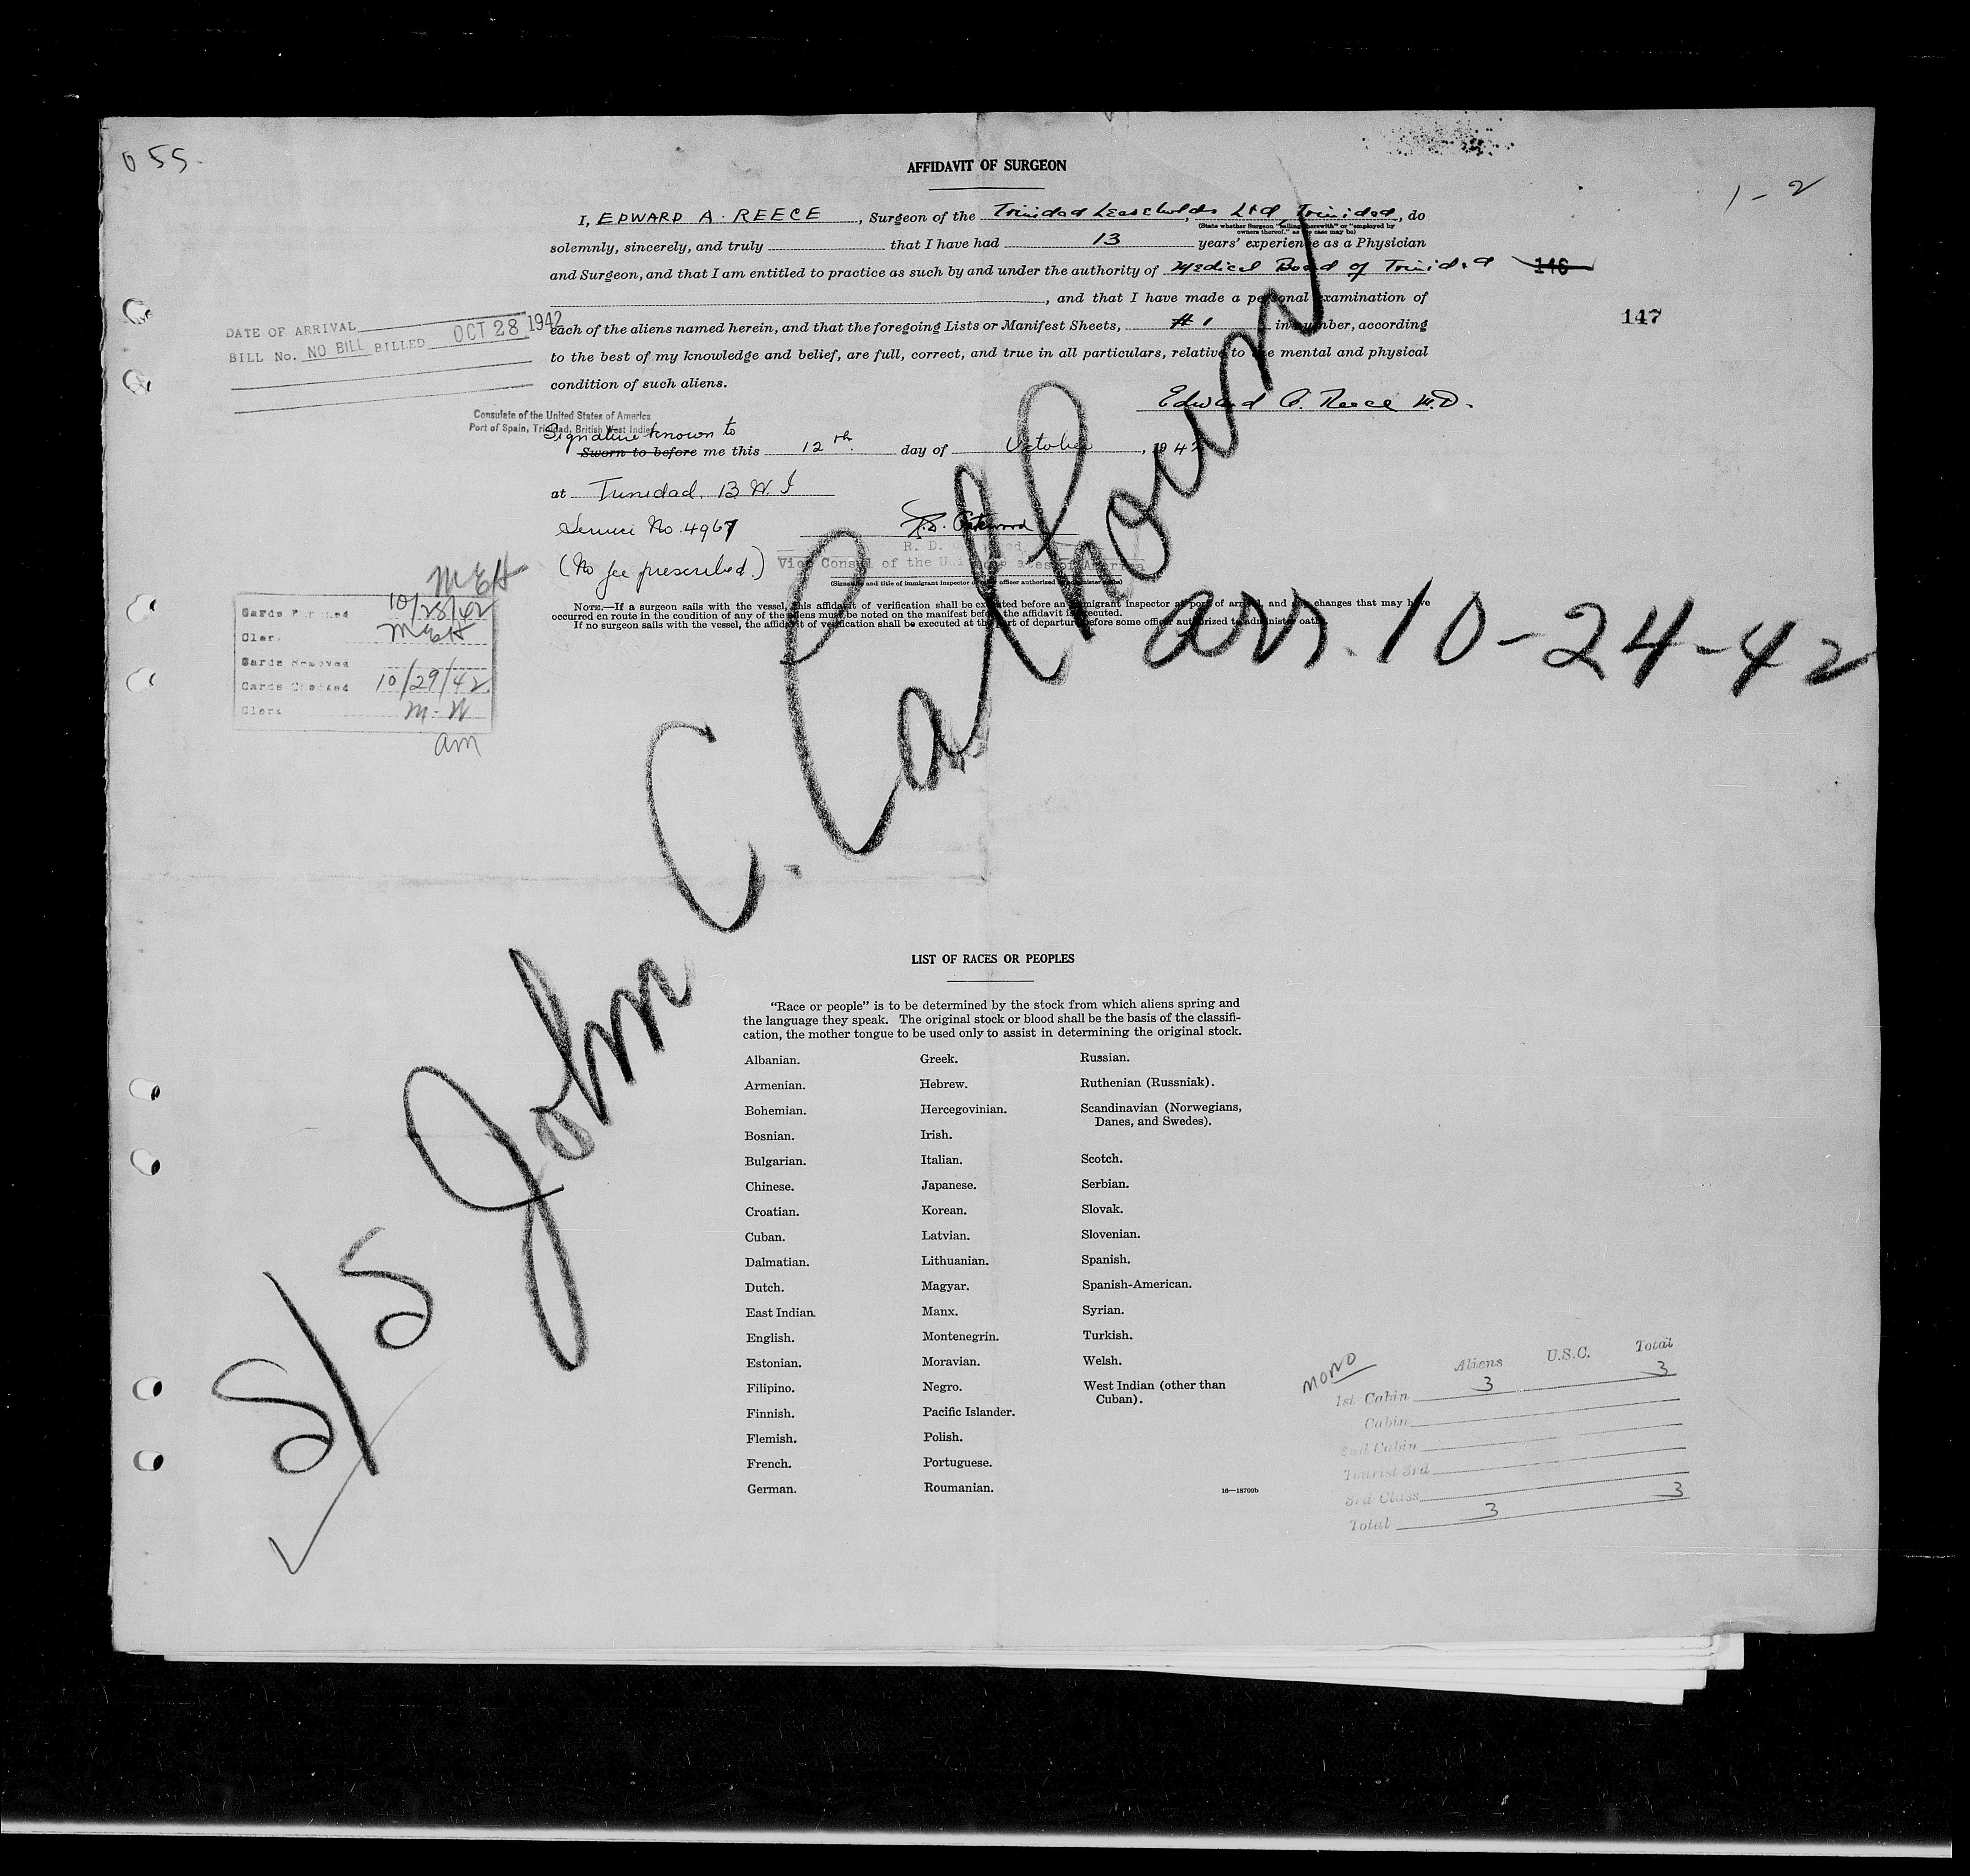 055-
AFFIDAVIT OF SURGEON
1-2
I, EDWARD A. REECE, Surgeon of the Trinidad Leaseholds Ltd, Trinidad, do
(State whether Surgeon "sailing therewith" or "employed by
owners thereof," as the case may be)
solemnly, sincerely, and truly that I have had 13 years' experience as a Physician
and Surgeon, and that I am entitled to practice as such by and under the authority of Medical Board of Trinidad
146
, and that I have made a personal examination of
147
each of the aliens named herein, and that the foregoing Lists or Manifest Sheets, # 1 in number, according
to the best of my knowledge and belief, are full, correct, and true in all particulars, relative to the mental and physical
condition of such aliens.
DATE OF ARRIVAL
BILL No. NO BILL BILLED OCT 28 1942
Edward A. Reece M.D.
Consulate of the United States of America
Port of Spain, Trinidad, British West Indies
Signature known to
Sworn to before me this 12th. day of October, 1942
at Trinidad, B.W.I
Service No. 4967
(No fee prescribed.)
R. D.
Vice Consul of the United States of America
(Signature and title of immigrant inspector or other officer authorized to administer oaths)
NOTE.—If a surgeon sails with the vessel, this affidavit of verification shall be executed before an immigrant inspector at port of arrival, and any changes that may have
occurred en route in the condition of any of the aliens must be noted on the manifest before the affidavit is executed.
If no surgeon sails with the vessel, the affidavit of verification shall be executed at the port of departure before some officer authorized to administer oaths.
MEH
Cards Punched 10/28/42
Clerk MEH
Cards Removed
Cards Checked 10/29/42
Clerk M-W
am
S/S John C. Calhoun
arr. 10-24-42
LIST OF RACES OR PEOPLES
"Race or people" is to be determined by the stock from which aliens spring and
the language they speak. The original stock or blood shall be the basis of the classifi-
cation, the mother tongue to be used only to assist in determining the original stock.
Albanian.
Armenian.
Bohemian.
Bosnian.
Bulgarian.
Chinese.
Croatian.
Cuban.
Dalmatian.
Dutch.
East Indian.
English.
Estonian.
Filipino.
Finnish.
Flemish.
French.
German.
Greek.
Hebrew.
Hercegovinian.
Irish.
Italian.
Japanese.
Korean.
Latvian.
Lithuanian.
Magyar.
Manx.
Montenegrin.
Moravian.
Negro.
Pacific Islander.
Polish.
Portuguese.
Roumanian.
Russian.
Ruthenian (Russniak).
Scandinavian (Norwegians,
Danes, and Swedes).
Scotch.
Serbian.
Slovak.
Slovenian.
Spanish.
Spanish-American.
Syrian.
Turkish.
Welsh.
West Indian (other than
Cuban).
16—18709b
MONO
Aliens U.S.C. Total
1st Cabin 3 3
Cabin
2nd Cabin
Tourist 3rd
3rd Class
Total 3 3